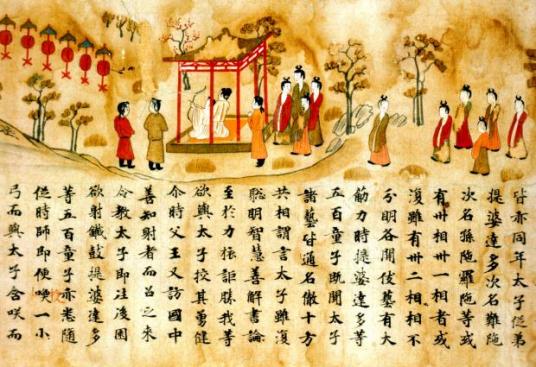 皆亦同年太子從弟
提婆達多次名難陁
次名孫陁羅陁等或
有卅相卅一相者或
復雖有卅二相相不
分明各閑伎藝有大
筋力時提婆達多等
五百童子既聞太子
諸藝皆通名徹十方
共相謂言太子雖復
聡明智慧善解書論
至於力詎勝我等
欲與太子挍其勇健
尒時父王又訪國中
善知射者而召之來
令教太子即注後園
欲射鐵鼓提婆達多
等五百童子亦悉随
從時師即便一小
弓而與太子含咲而